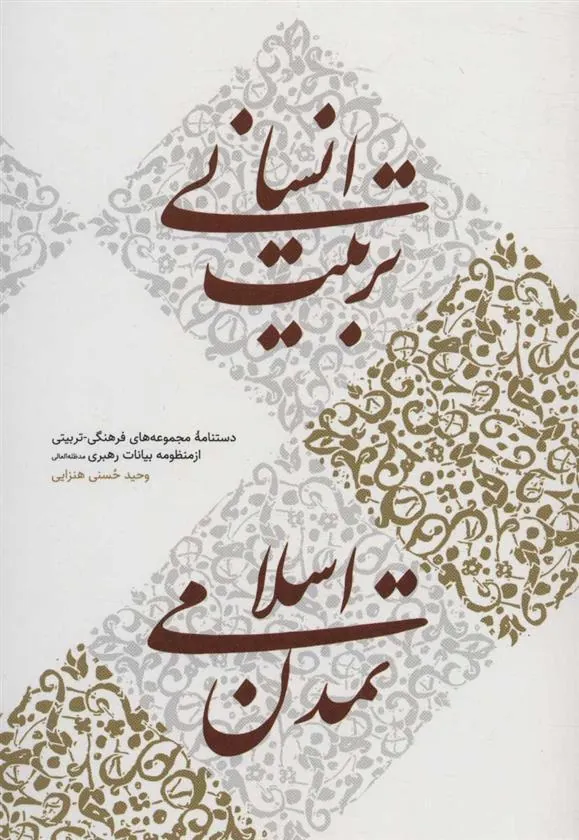 تربیت انسانی
دستنامهٔ مجموعه‌های فرهنگی-تربیتی
از منظومه بیانات رهبری مدظله‌العالی
وحید حُسنی هنزایی
تمدن اسلامی